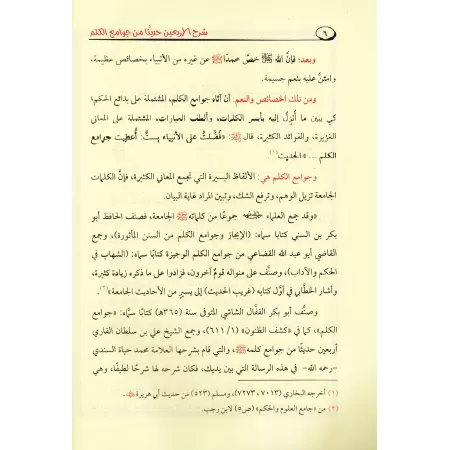 ٦
شرح الأربعين حديثًا من جوامع الكلم
وبعد؛ فإنَّ الله ﷻ خصَّ محمدًا ﷺ عن غيره من الأنبياء بخصائص عظيمة،
وامتنَّ عليه بنعم جسيمة.
ومن تلك الخصائص والنعم: أن آتاه جوامع الكلم، المشتملة على بدائع الحكم؛
كي يبين ما أُنزل إليه بأيسر الكلمات، وألطف العبارات، المشتملة على المعاني
الغزيرة، والفوائد الكثيرة، قال ﷺ: «فُضِّلتُ على الأنبياء بستٍّ: أُعطيت جوامع
الكلم ... » الحديث(١).
وجوامع الكلم هي: الألفاظ اليسيرة التي تجمع المعاني الكثيرة، فإنَّ الكلمات
الجامعة تزيل الوهم، وترفع الشك، وتبين المراد غاية البيان.
«وقد جمع العلماء جموعًا من كلماته ﷺ الجامعة، فصنف الحافظ أبو
بكر بن السني كتابا سماه: (الإيجاز وجوامع الكلم من السنن المأثورة)، وجمع
القاضي أبو عبد الله القضاعي من جوامع الكلم الوجيزة كتابا سماه: (الشهاب في
الحكم والآداب)، وصنَّف على منواله قومٌ آخرون، فزادوا على ما ذكره زيادة كثيرة،
وأشار الخطَّابي في أوَّل كتابه (غريب الحديث) إلى يسيرٍ من الأحاديث الجامعة»(٢).
وصنَّف أبو بكر القفَّال الشاشي المتوفى سنة (٣٦٥هـ) كتابًا سمَّاه: «جوامع
الكلم»، كما في «كشف الظنون» (٦١١/١)، وجمع الشيخ علي بن سلطان القاري
أربعين حديثًا من جوامع كلمه ﷺ، والتي قام بشرحها العلامة محمد حياة السندي
-رحمه الله- في هذه الرسالة التي بين يديك، فكان شرحه لها شرحًا لطيفًا، وهي
(١) أخرجه البخاري (٧٠١٣، ٧٢٧٣)، ومسلم (٥٢٣) من حديث أبي هريرة.
(٢) من «جامع العلوم والحكم» (ص٥) لابن رجب.